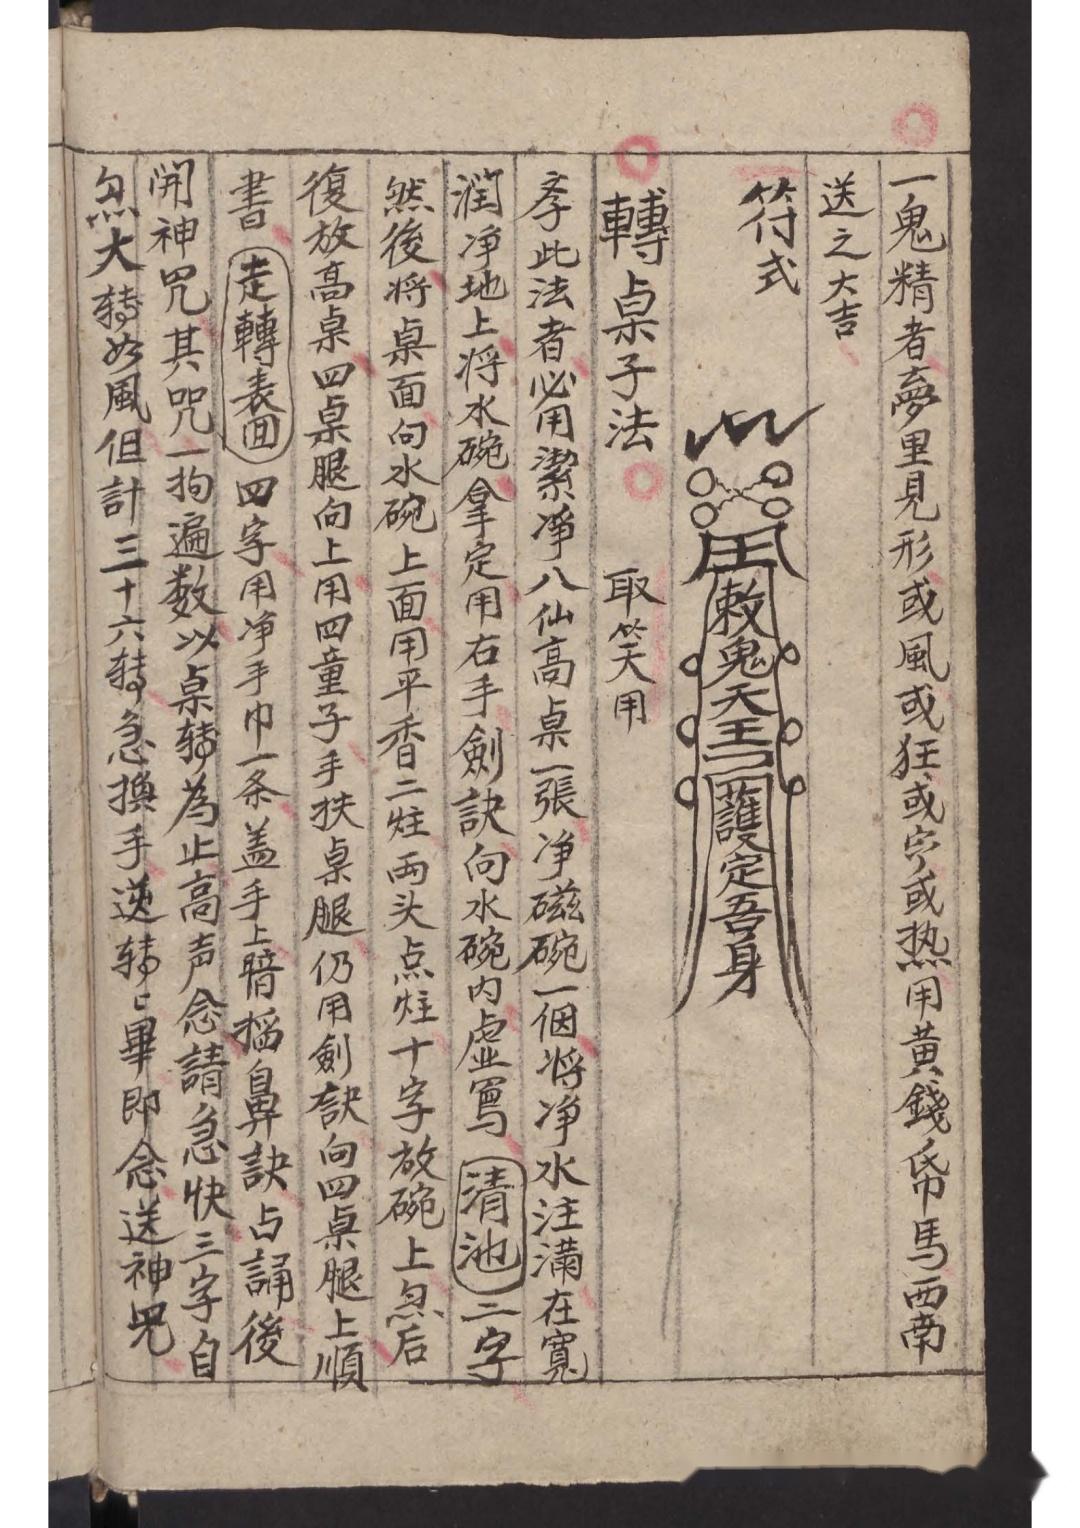 一鬼精者夢里見形或風或狂或宁或热用黄錢帋馬西南
送之大吉
符式
敕鬼天王 護定吾身
轉桌子法 取笑用
孝此法者必用潔凈八仙高桌一張净磁碗一個将净水注滿在寬
潤净地上将水碗拿定用右手劍訣向水碗内虚寫 清池 二字
然後将桌面向水碗上面用平香二炷两头点炷十字放碗上然后
復放高桌四桌腿向上用四童子手扶桌腿仍用劍訣向四桌腿上順
書 走轉表面 四字用净手巾一条盖手上暗搯鼻訣占誦後
開神咒其咒一拘遍数以桌转為止高声念請急快三字自
然大转如風但計三十六转急換手逆转畢即念送神咒